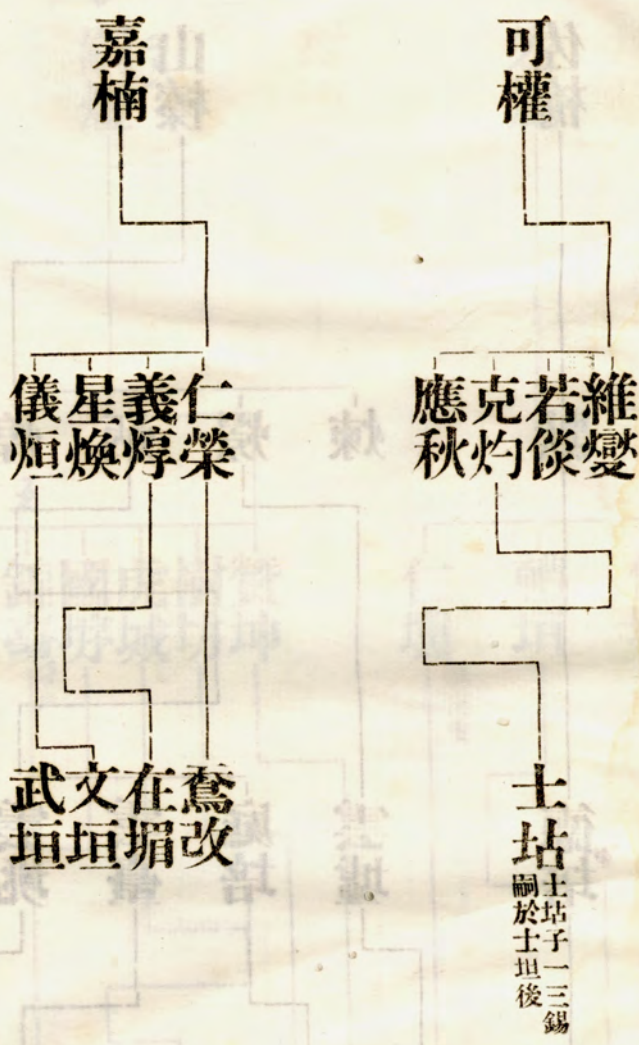 可權
維燮
若倓
克灼
應秋
士坫
士坫子一三錫
嗣於士坦後
嘉楠
仁榮
義焞
星煥
儀烜
鴌改
在堳
文垣
武垣